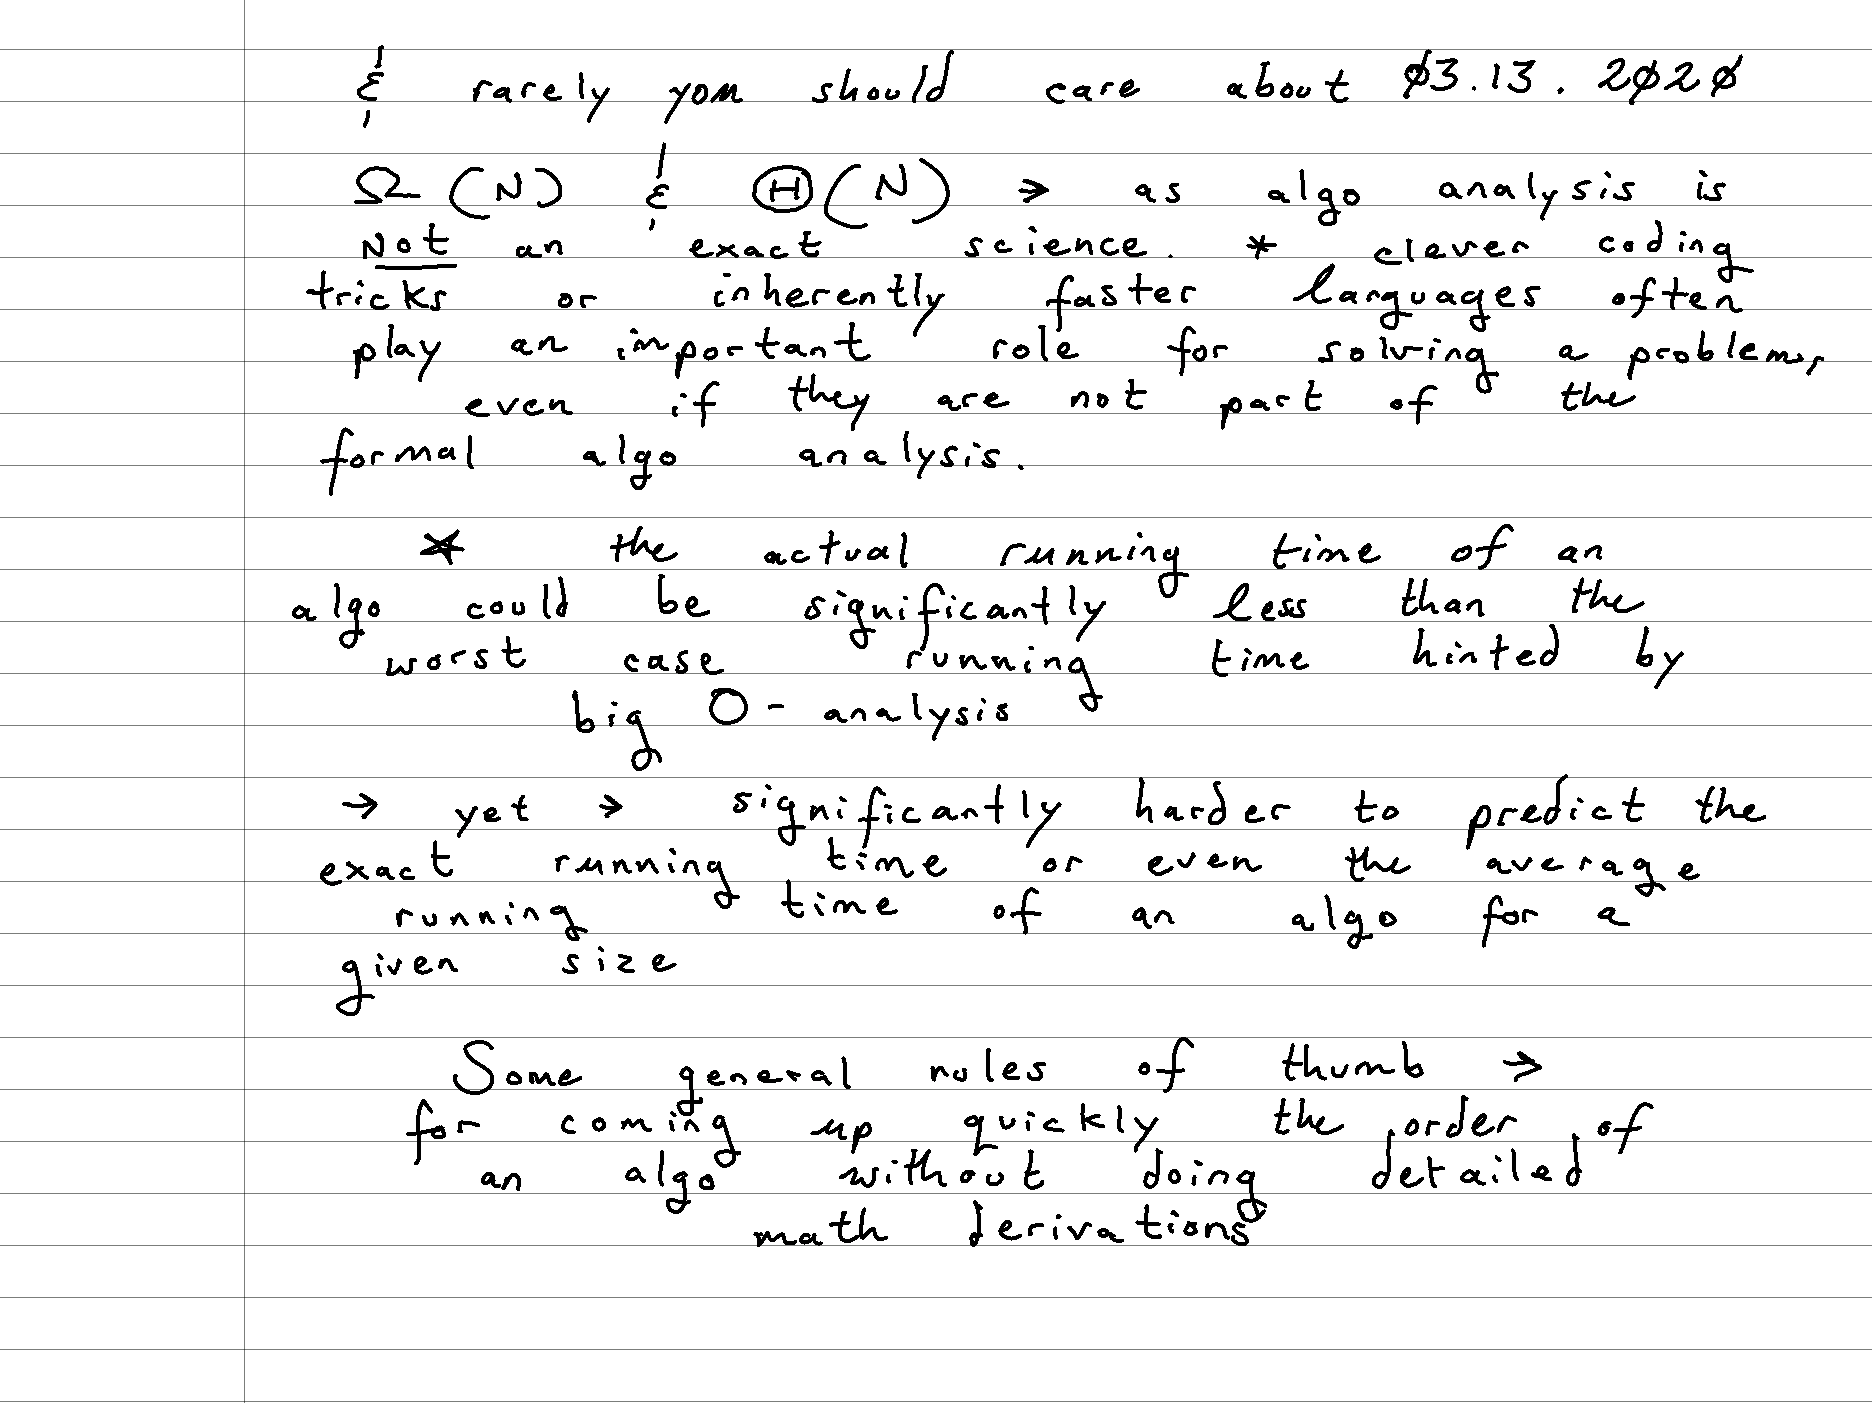 & rarely you should care about 03.13.2020
Ω(N) & Θ(N) → as algo analysis is
NOT an exact science. * clever coding
tricks or inherently faster languages often
play an important role for solving a problem,
even if they are not part of the
formal algo analysis.
* the actual running time of an
algo could be significantly less than the
worst case running time hinted by
big O-analysis
→ yet → significantly harder to predict the
exact running time or even the average
running time of an algo for a
given size
Some general rules of thumb →
for coming up quickly the order of
an algo without doing detailed
math derivations